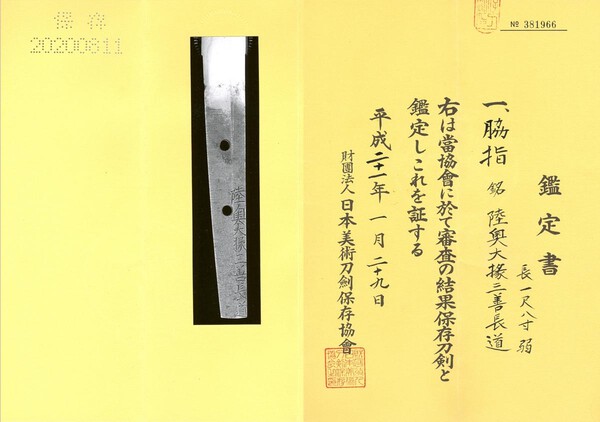 保存
20200811
陸奥大掾三善長道
№ 381966
鑑定書
一、脇指 銘 陸奥大掾三善長道
長一尺八寸弱
右は當協會に於て審査の結果保存刀剣と
鑑定しこれを証する
平成二十一年一月二十九日
財團法人日本美術刀剣保存協會